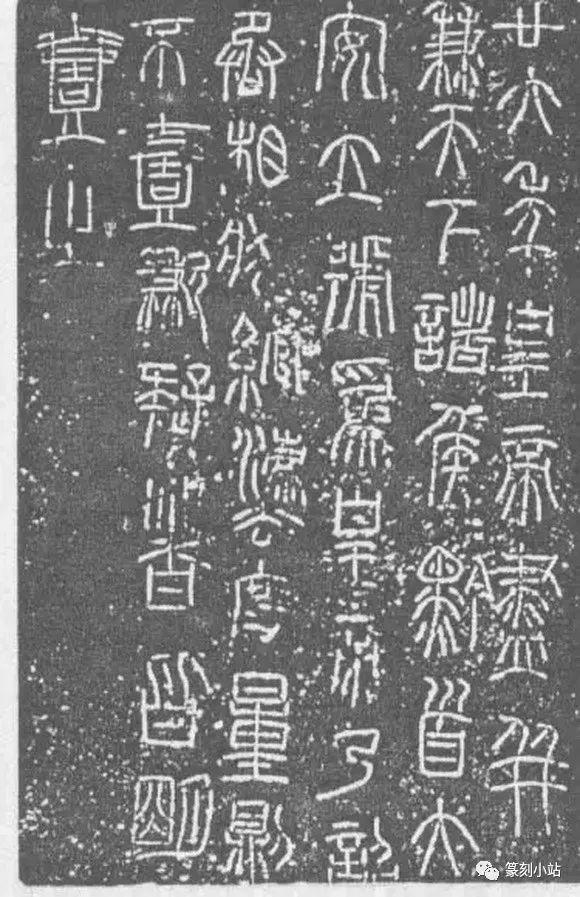 廿六年皇帝盡并
兼天下諸侯黔首大
安立號為皇帝乃詔
丞相狀綰灋度量則
不壹歉疑者皆明
壹之
篆刻小站